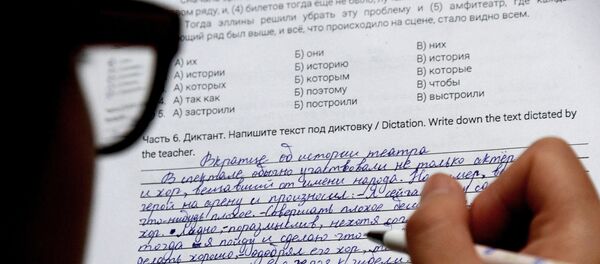 ом ряду, и, (4) билетов тогда ещё не было,
Тогда эллины решили убрать эту проблему и (5) амфитеатр, где
ющий ряд был выше, и всё, что происходило на сцене, стало видно всем.
А) их Б) они В) них
А) истории Б) историю В) история
А) которых Б) которым В) которые
4. А) так как Б) поэтому В) чтобы
5. А) застроили Б) построили В) выстроили
Часть 6. Диктант. Напишите текст под диктовку / Dictation. Write down the text dictated by
the teacher.
Вкратце об истории театра
В спектакле обычно участвовали не только актёр
и хор, вещавший от имени народа. Например, в
герой на сцену и произносил: - Я сейчас
что-нибудь плохое. - Совершать плохое
хор. - Ладно, - поразмыслив, нехотя
тогда я пойду и сделаю что-
делать хорошо, - одобрял его хор,
героя к гибели